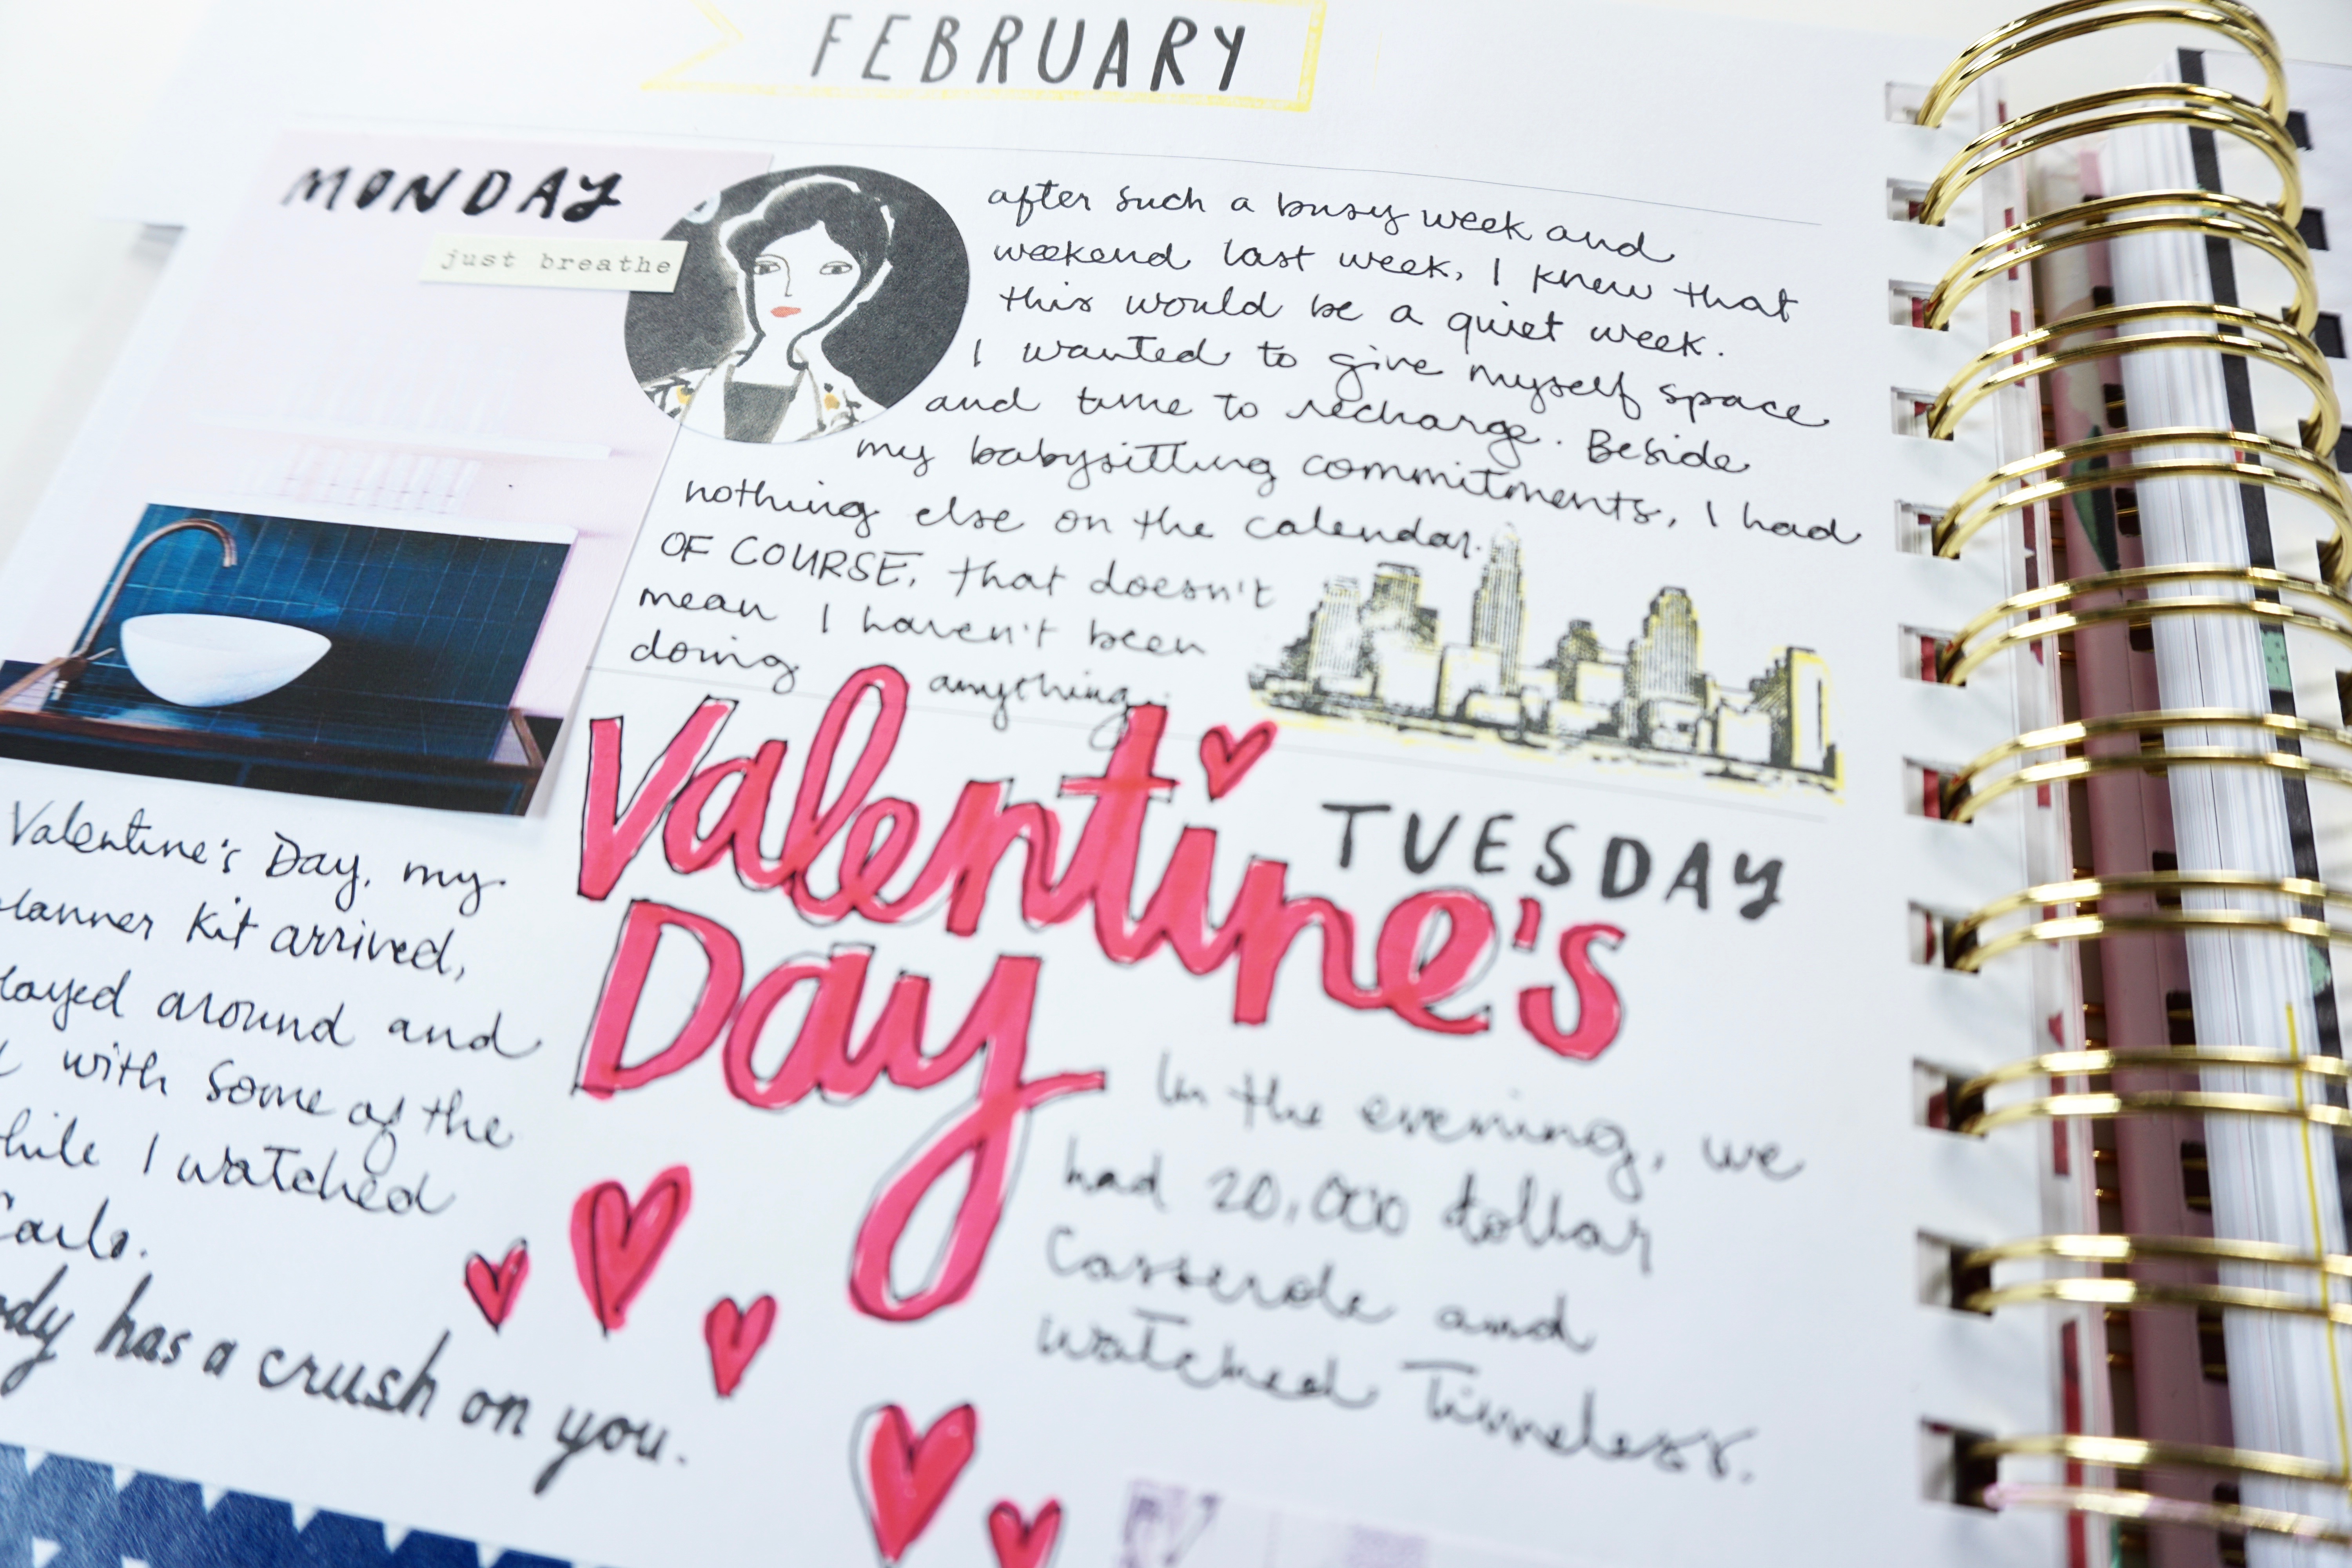 FEBRUARY
MONDAY
just breathe
after such a busy week and
weekend last week, I knew that
this would be a quiet week.
I wanted to give myself space
and time to recharge. Beside
my babysitting commitments, I had
nothing else on the calendar.
OF COURSE, that doesn't
mean I haven't been
doing anything.
Valentine's
Day
TUESDAY
Valentine's Day, my
lanner kit arrived,
layed around and
with some of the
hile I watched
Carlo.
In the evening, we
had 20,000 dollar
Casserole and
watched Timeless.
ody has a crush on you.